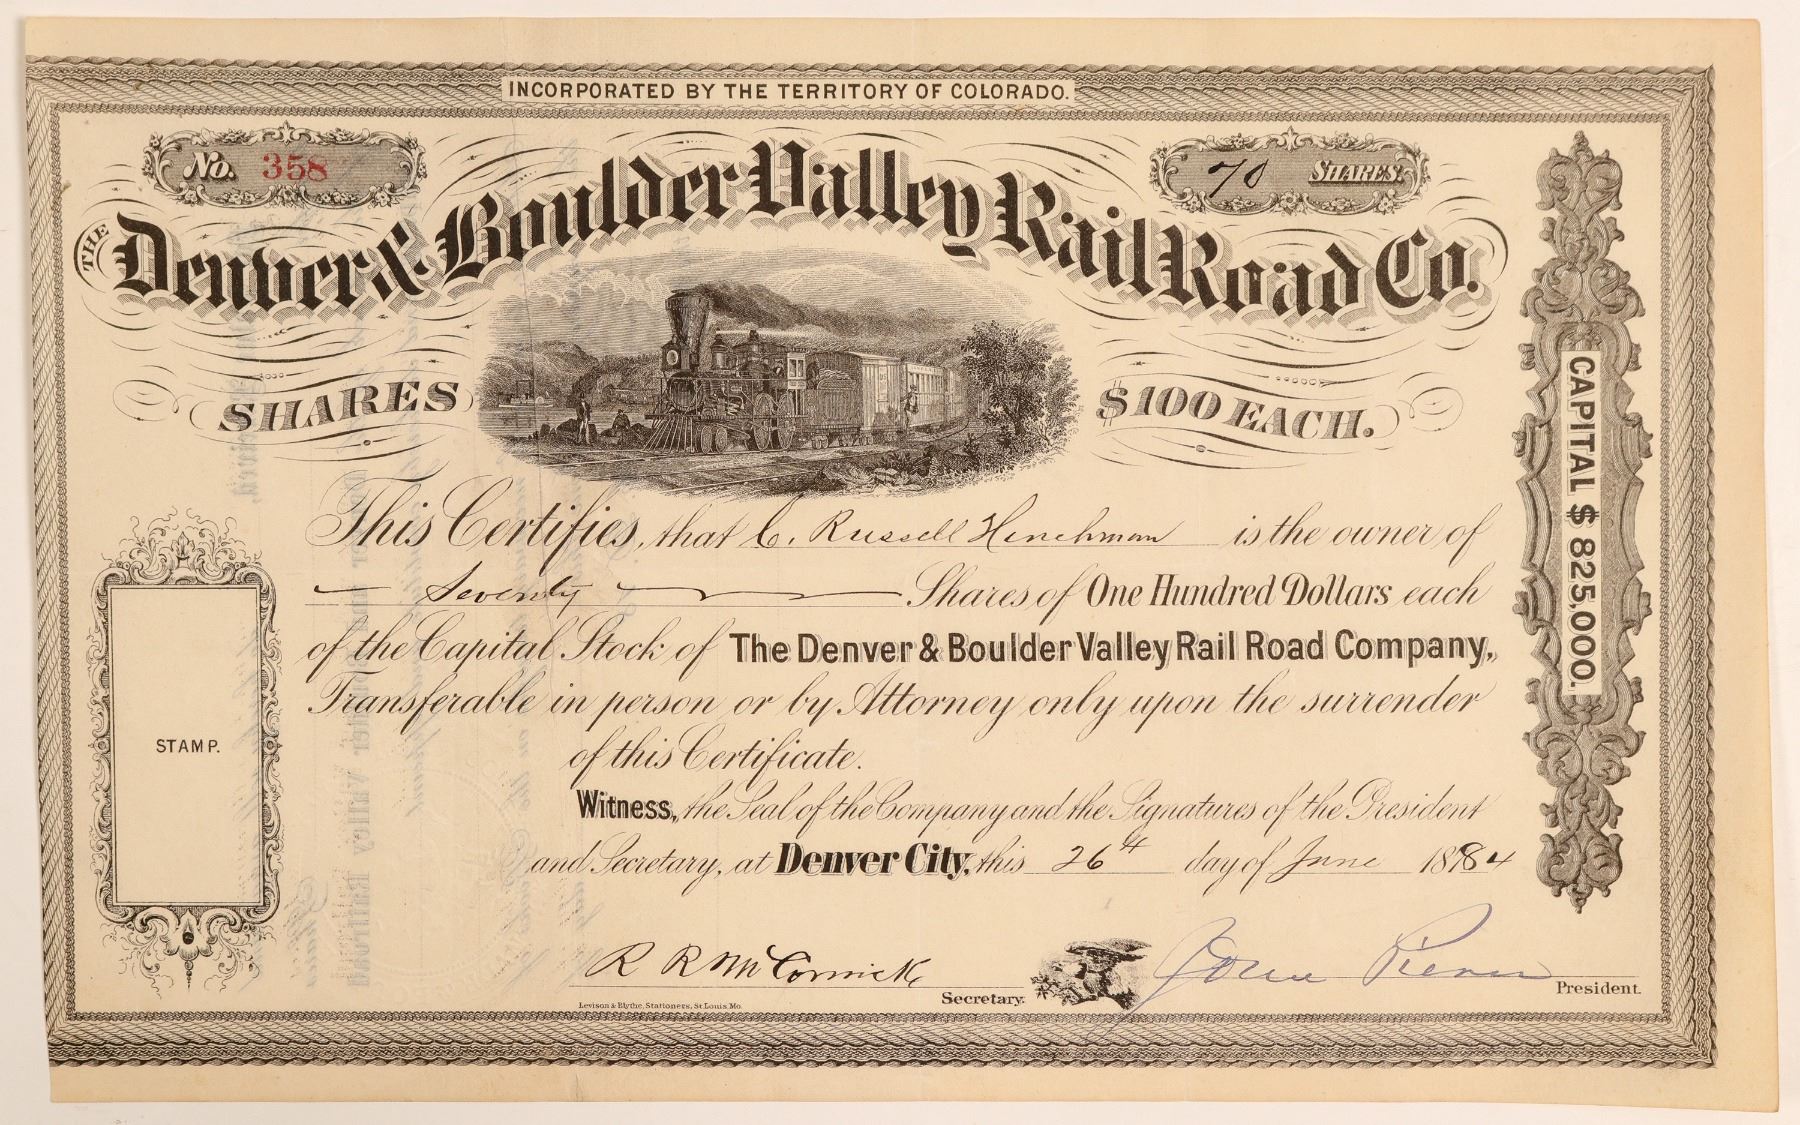 INCORPORATED BY THE TERRITORY OF COLORADO.
No. 358
70 SHARES.
THE Denver & Boulder Valley Rail Road Co.
SHARES $100 EACH.
CAPITAL $825,000.
This Certifies, that C. Russell Hinchman is the owner of
Seventy Shares of One Hundred Dollars each
of the Capital Stock of The Denver & Boulder Valley Rail Road Company,
Transferable in person or by Attorney only upon the surrender
of this Certificate.
STAMP.
Witness, the Seal of the Company and the Signatures of the President
and Secretary, at Denver City, this 26th day of June 1884
R R McCormick Secretary.
President.
Levison & Blythe, Stationers, St Louis Mo.